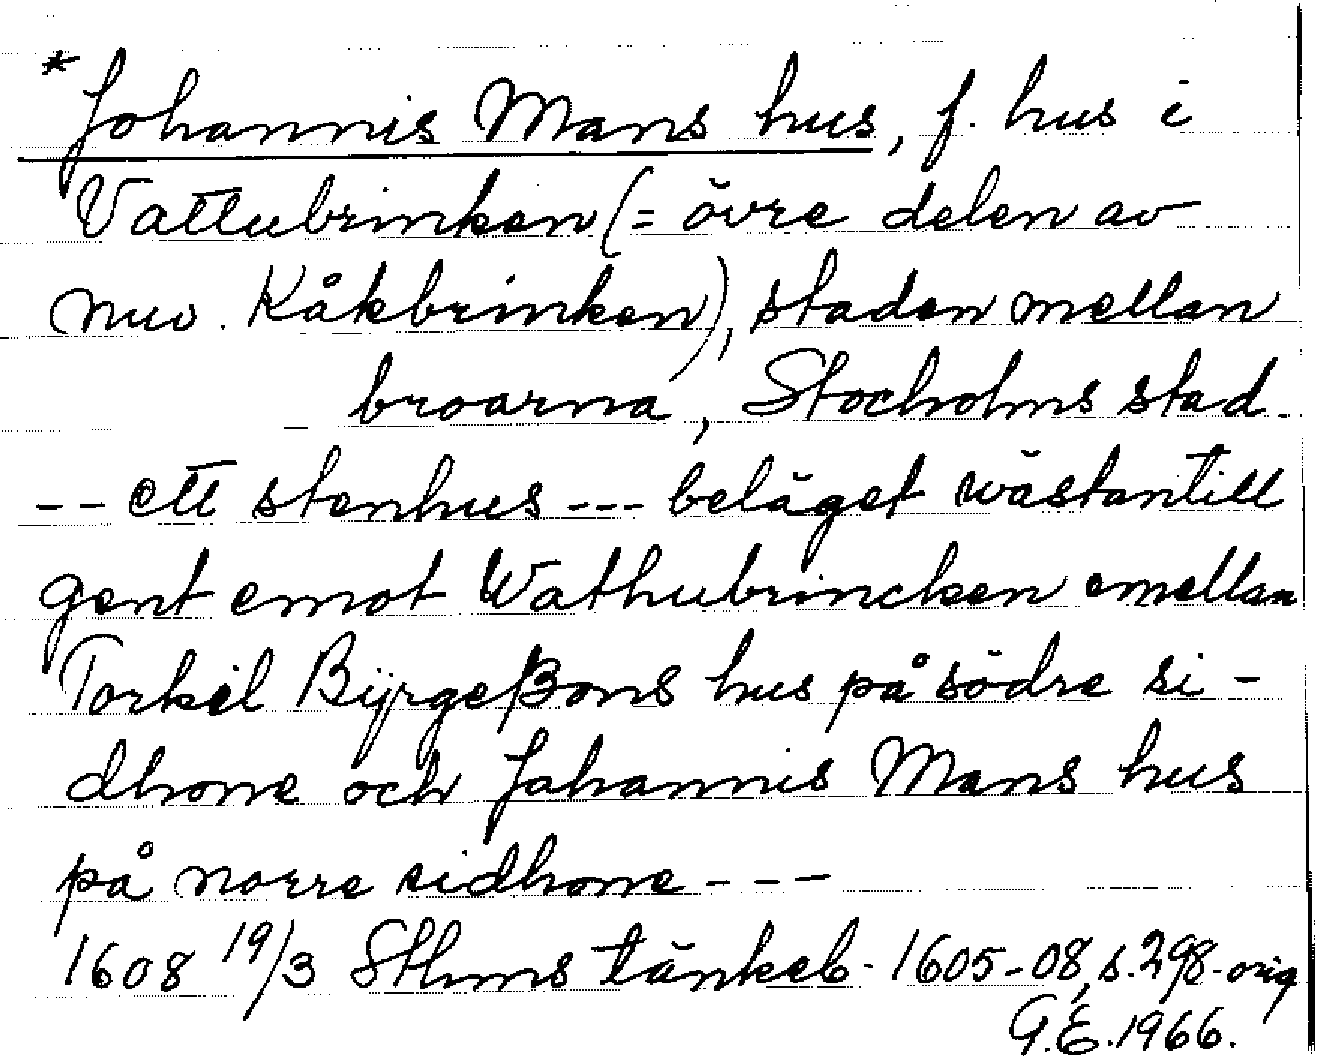 * Johannis Mans hus, f. hus i
Vattubrinken (= övre delen av
nuv. Kåkbrinken), staden mellan
broarna, Stocholms stad.
-- ett stenhus --- beläget wästantill
gent emot Wathubrincken emellan
Torkel Byrgeßons hus på södre si-
dhone och Johannis Mans hus
på norre sidhone ---
1608 19/3 Sthms tänkeb. 1605-08, s. 298. orig
G.E. 1966.